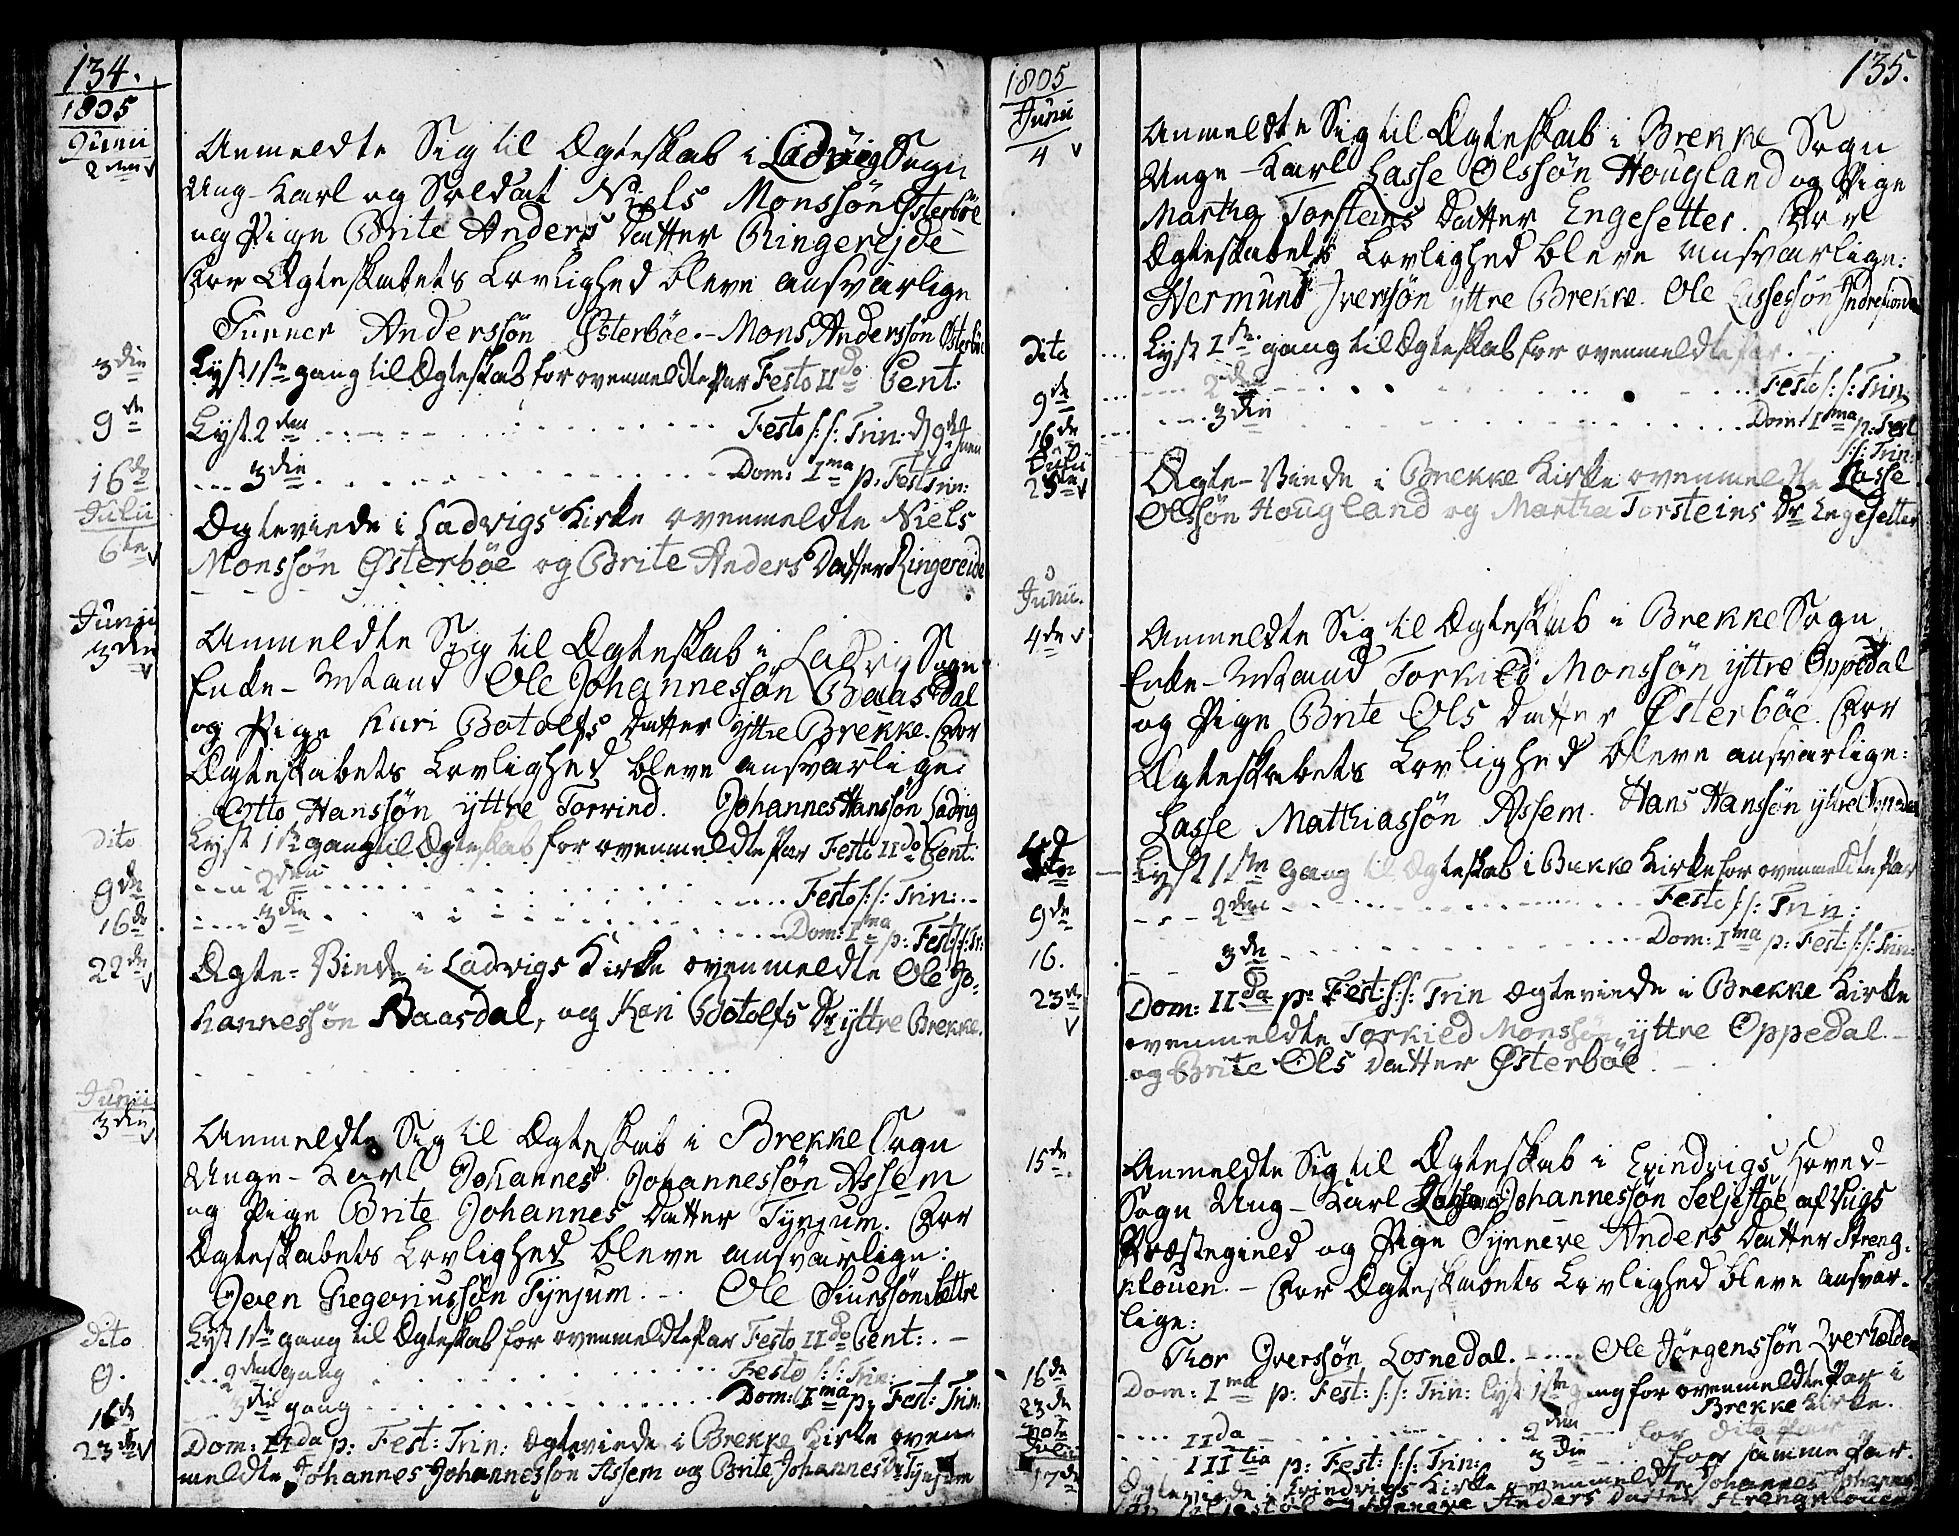 134.
1805
Junii
2den
Anmeldte Sig til Ægteskab i Ladvig Sogn
Ung-Karl og Soldat Niels Monssøn Østerböe
og Pige Brite Anders Datter Ringereide
For Ægteskabets Lovlighed bleve ansvarlige
Gunner Anderssøn Østerböe. - Mons Anderssøn Österböe
3die Lyst 1ste gang til Ægteskab for ovenmeldte Par Festo IIdo Pent:
9de Lyst 2den Festo S:S: Trin: d. 9de Junii
16de 3die Dom: Ima p: Fest Trin:
Julii
6te Ægteviede i Ladvigs Kirke ovenmeldte Niels
Monssøn Østerböe og Brite Anders Datter Ringereide
Junii
3die
Anmeldte Sig til Ægteskab i Ladvig Sogn
Enke-Mand Ole Johannessøn Baasdal
og Pige Kari Botolfs Datter yttre Brekke. For
Ægteskabets Lovlighed bleve ansvarlige:
Otto Hanssøn yttre Torvind. Johannes Hanssøn Ladvig
dito Lyst 1ste gang til Ægteskab for ovenmeldte Par Festo IIdo Pent:
9de 2den Festo S:S: Trin:
16de 3die Dom: Ima p: Fest: S:S: Tr:
22de Ægte-Viede i Ladvigs Kirke ovenmeldte Ole Jo-
hannessøn Baasdal, og Kari Botolfs Dr yttre Brekke.
Junii
3die
Anmeldte Sig til Ægteskab i Brekke Sogn
Unge-Karl Johannes Johannessøn Assem
og Pige Brite Johannes Datter Tynjum. For
Ægteskabets Lovlighed bleve ansvarlige:
Gregoriussøn Tynjum. - Ole Siurssøn Sættre
dito Lyst 1ste gang til Ægteskab for ovenmeldte Par Festo IIdo Pent:
9. 2den gang Festo S:S: Trin:
16de 3die gang Dom: Ima p: Fest: Trin:
23de Dom: IIda p: Fest: Trin: Ægteviede i Brekke Kirke oven-
meldte Johannes Johannessøn Assem og Brite Johannes Dr Tynjum
135.
1805
Junii
4
Anmeldte Sig til Ægteskab i Brekke Sogn
Unge-Karl Lasse Olssøn Hougland og Pige
Martha Torsteins Datter Engesetter. For
Ægteskabets Lovlighed bleve ansvarlige:
Hermund Iverssøn yttre Brekke. Ole Lassessøn
dito Lyst 1ste gang til Ægteskab for ovenmeldte Par.
9de 2den Festo S:S: Trin:
16de 3die Dom: Ima p: Fest
S:S: Trin:
Julii
Ægte-Viede i Brekke Kirke ovenmeldte Lasse
Olssøn Hougland og Martha Torsteins Dr Engesetter
Junii.
4de
Anmeldte Sig til Ægteskab i Brekke Sogn
Enke-Mand Torkied Monssøn yttre Oppedal
og Pige Brite Ols Datter Østerböe. For
Ægteskabets Lovlighed bleve ansvarlige:
Lasse Mathiassøn Assem. Hans Hanssøn yttre Oppedal
dito Lyst 1ste Gang til Ægteskab i Brekke Kirke for ovenmeldte Par
9de 2den Festo S:S: Trin:
16. 3die Dom: Ima p: Fest: S:S: Trin:
23de Dom: IIda p: Fest: S:S: Trin Ægteviede i Brekke Kirke
ovenmeldte Torkied Monssøn yttre Oppedal.
og Brite Ols Datter Østerböe
15de
Anmeldte Sig til Ægteskab i Evindvigs Hoved-
Sogn Ung-Karl Johannessøn af Vigs
Præstegield og Pige Synneve Anders Datter Streng-
klouen. - For Ægteskabets Lovlighed bleve ansvar-
lige:
Thor Iverssøn Losnedal. - Ole Jörgenssön
16de Dom: Ima p: Fest: S:S: Trin: Lyst 1ste gang for ovenmeldte Par i
Brekke Kirke.
23de IIda 2den for dito Par
30te IIItia p: Fest: S:S: Trin: 3die for samme Par.
Julii
17de Ægteviede i Evindvigs Kirke ovenmeldte Johannes Johannes-
og Synneve Anders Datter Strengklouen